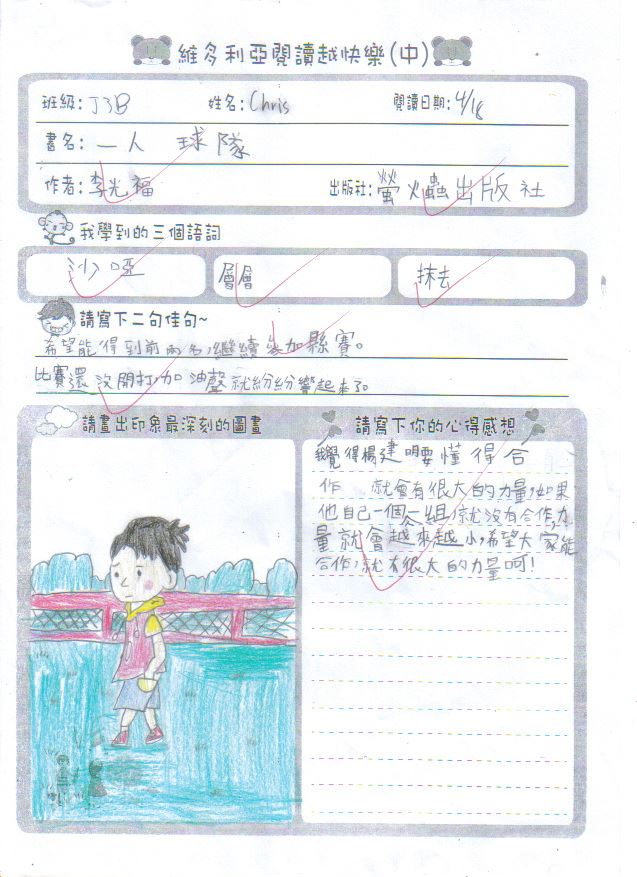 維多利亞閱讀越快樂(中)
班級: J3B 姓名: Chris 閱讀日期: 4/18
書名: 一人球隊
作者: 李光福 出版社: 螢火蟲出版社
我學到的三個語詞
沙啞 層層 抹去
請寫下二句佳句~
希望能得到前兩名,繼續參加縣賽。
比賽還沒開打,加油聲就紛紛響起來了。
請畫出印象最深刻的圖畫
請寫下你的心得感想
我覺得楊建明要懂得合
作 就會有很大的力量,如果
他自己一個一組,就沒有合作,力
量就會越來越小,希望大家能
合作,就有很大的力量呵!